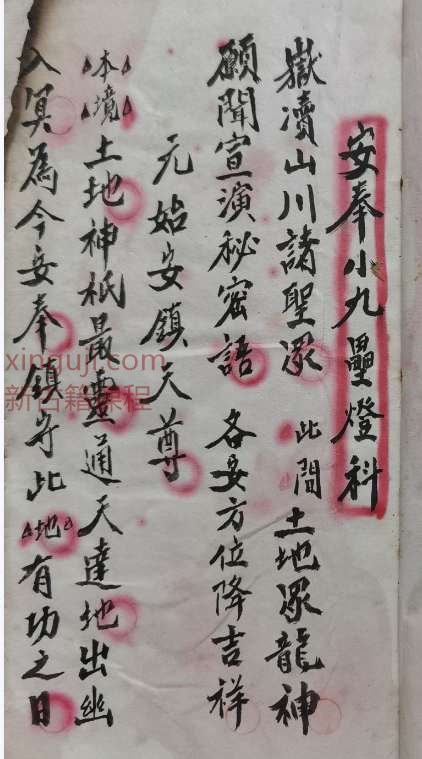 安奉小九壘燈科
嶽瀆山川諸聖衆 此間土地衆龍神
願聞宣演秘密語 各安方位降吉祥
元始安鎮天尊
本境土地神祇最靈通天達地出幽
入冥為今安奉鎮守此地有功之日
xinguji.com
新古籍課程